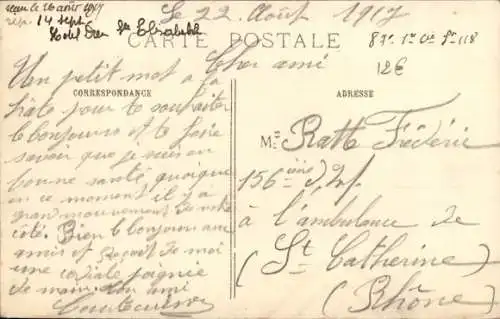 reçu le 26 août 1917
rép. 14 sept.
Hotel Dieu Ste Elisabeth
Le 22 Août 1917
CARTE POSTALE
Cher ami
Un petit mot a la
hate pour te souhaiter
le bonjour et te faire
savoir que je suis en
bonne santé quoique
en ce moment il y a
grand mouvement de notre
côté. Bien le bonjour aux
amis et Reçoit de moi
une cordiale poignée
de main. Ton ami
CORRESPONDANCE
ADRESSE
12€
M. Ratte Fréderic
156 ième d'Inf.
à l'ambulance de
(St Catherine)
(Rhône)